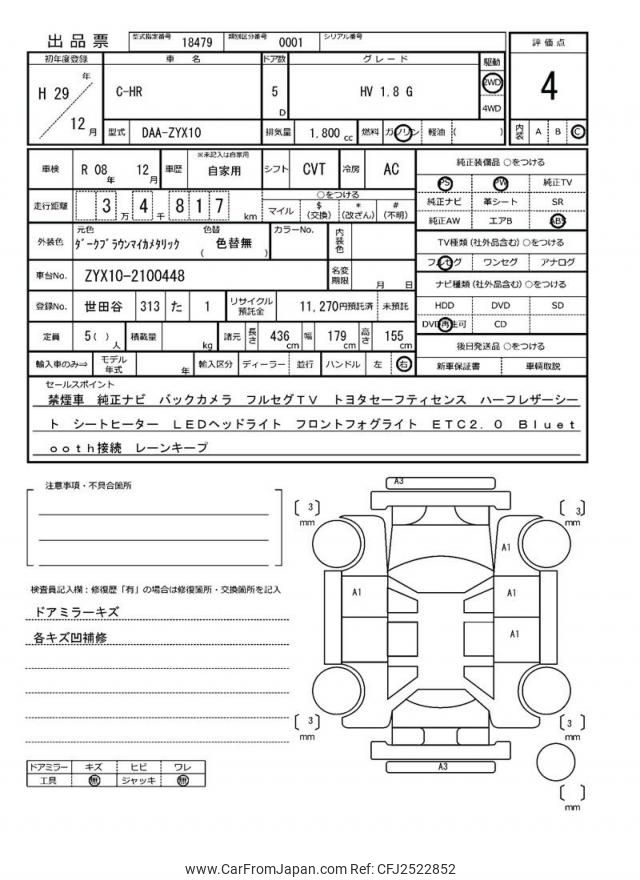 出品票 型式指定番号 18479 類別区分番号 0001 シリアル番号
評価点
4
内装 A B C
初年度登録 車 名 ドア数 グレード 駆動
H 29 年 12 月
C-HR 5 D HV 1.8 G 2WD
4WD
型式 DAA-ZYX10 排気量 1.800 cc 燃料 ガソリン 軽油 ( )
車検 R 08 年 12 月 車歴 ※未記入は自家用 自家用 シフト CVT 冷房 AC
走行距離 3 万 4 千 8 1 7 km
○をつける
マイル $ (交換) * (改ざん) # (不明)
外装色 元色 ﾀﾞｰｸﾌﾞﾗｳﾝﾏｲｶﾒﾀﾘｯｸ 色替 ( 色替無 ) カラーNo. 内装色
車台No. ZYX10-2100448 名変期限 月 日
登録No. 世田谷 313 た 1 リサイクル預託金 11,270円預託済 未預託
定員 5( ) 人 積載量 kg 諸元 長さ 436 cm 幅 179 cm 高さ 155 cm
輸入車のみ⇒ モデル年式 年 輸入区分 ディーラー 並行 ハンドル 左 右
純正装備品 ○をつける
PS PW 純正TV
純正ナビ 革シート SR
純正AW エアB ABS
TV種類(社外品含む) ○をつける
フルセグ ワンセグ アナログ
ナビ種類(社外品含む) ○をつける
HDD DVD SD
DVD再生可 CD
後日発送品 ○をつける
新車保証書 車輌取説
セールスポイント
禁煙車 純正ナビ バックカメラ フルセグTV トヨタセーフティセンス ハーフレザーシー
ト シートヒーター LEDヘッドライト フロントフォグライト ETC2.0 Bluet
ooth接続 レーンキープ
注意事項・不具合箇所
検査員記入欄：修復歴「有」の場合は修復箇所・交換箇所を記入
ドアミラーキズ
各キズ凹補修
ドアミラー キズ ヒビ ワレ
工具 無 ジャッキ 無
A3
3 mm
3 mm
A1
A1
A1
A1
3 mm
3 mm
A3
mm
www.CarFromJapan.com Ref: CFJ2522852